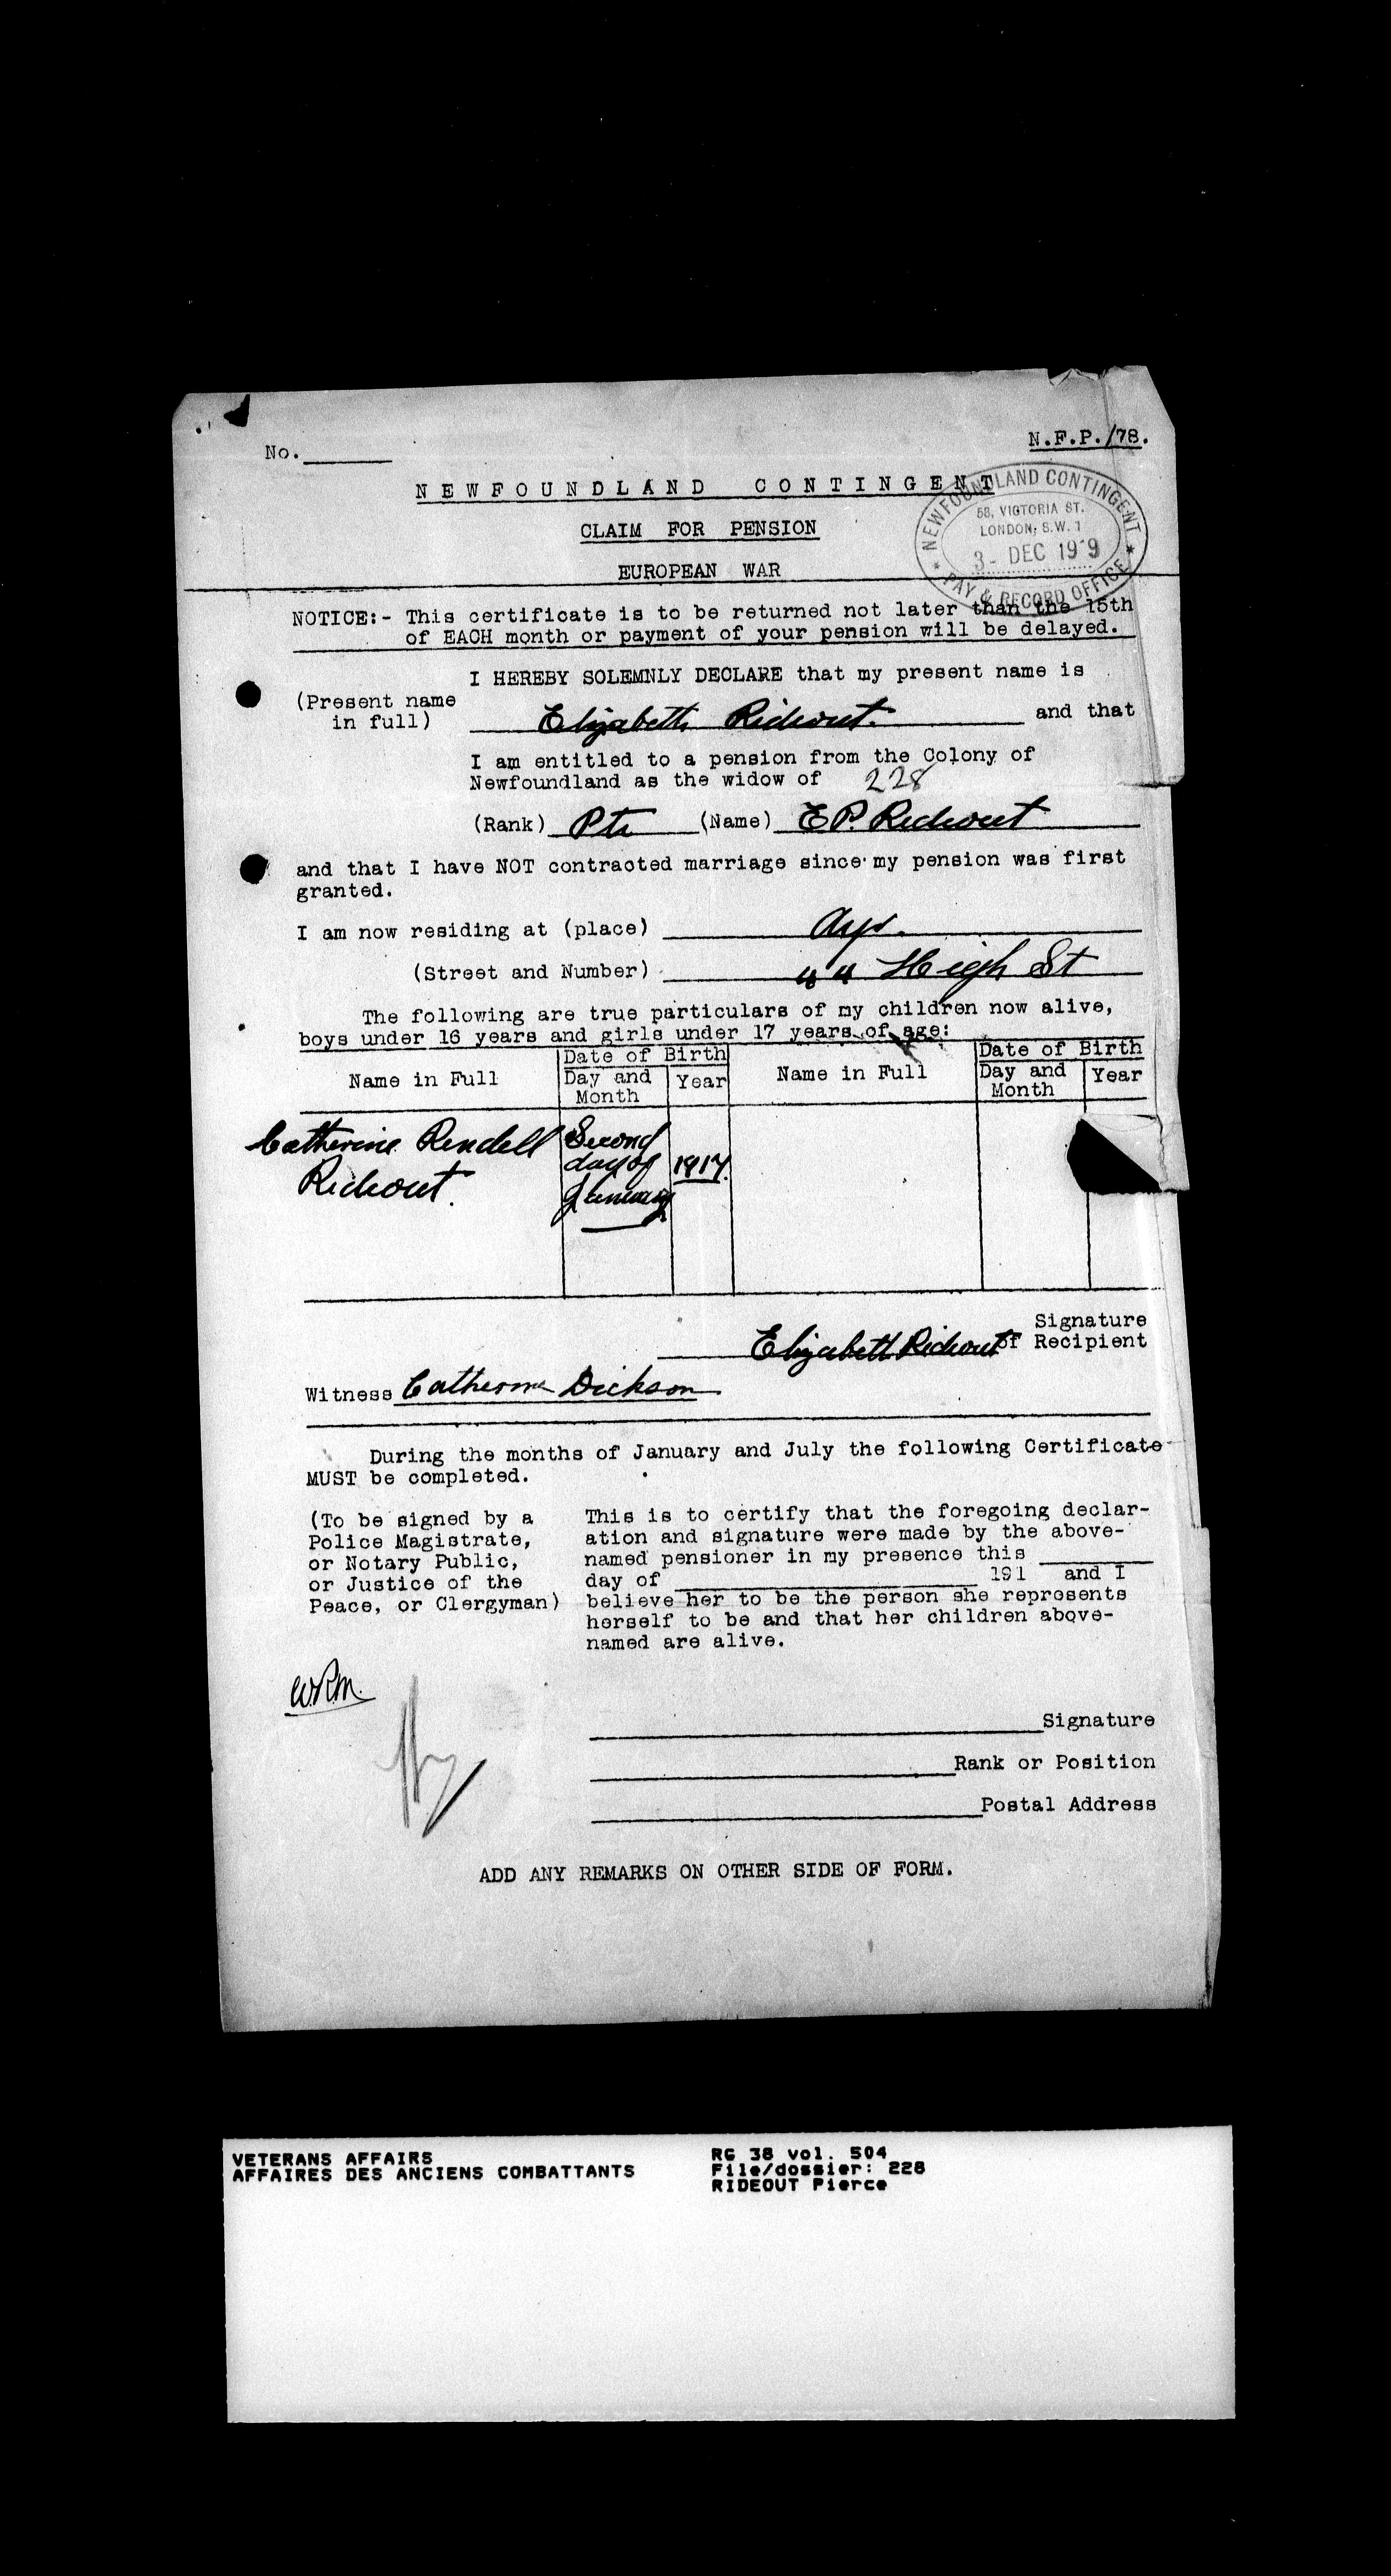 No.
N.F.P./78.
NEWFOUNDLAND CONTINGENT
NEWFOUNDLAND CONTINGENT
58, VICTORIA ST.
LONDON, S.W. 1
3 - DEC 1919
* PAY & RECORD OFFICE *
CLAIM FOR PENSION
EUROPEAN WAR
NOTICE:- This certificate is to be returned not later than the 15th
of EACH month or payment of your pension will be delayed.
I HEREBY SOLEMNLY DECLARE that my present name is
(Present name
in full)
Elizabeth Rideout. and that
I am entitled to a pension from the Colony of
Newfoundland as the widow of 228
(Rank) Pte (Name) E P. Rideout
and that I have NOT contracted marriage since my pension was first
granted.
I am now residing at (place) Ayr.
(Street and Number) 44 High St
The following are true particulars of my children now alive,
boys under 16 years and girls under 17 years of age:
Name in Full Date of Birth Name in Full Date of Birth
Day and Month Year Day and Month Year
Catherine Rendell Second
day of 1917.
Rideout. January
Signature
Elizabeth Rideout of Recipient
Witness Catherine Dickson
During the months of January and July the following Certificate
MUST be completed.
(To be signed by a
Police Magistrate,
or Notary Public,
or Justice of the
Peace, or Clergyman)
This is to certify that the foregoing declar-
ation and signature were made by the above-
named pensioner in my presence this
day of 191 and I
believe her to be the person she represents
herself to be and that her children above-
named are alive.
W.R.M.
Signature
Rank or Position
Postal Address
ADD ANY REMARKS ON OTHER SIDE OF FORM.
VETERANS AFFAIRS
AFFAIRES DES ANCIENS COMBATTANTS
RG 38 vol. 504
File/dossier: 228
RIDEOUT Pierce